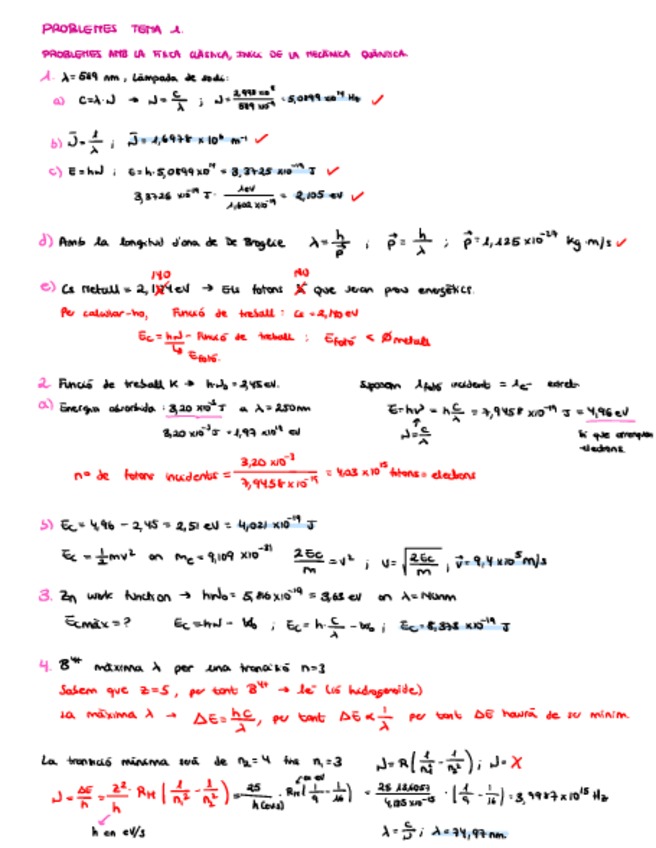 PROBLEMES TEMA 1.
PROBLEMES AMB LA FÍSICA CLÀSSICA, INICI DE LA MECÀNICA QUÀNTICA.
1. λ = 589 nm, Làmpada de sodi:
a) C=λ·ν → ν = c/λ ; ν = = 5,0899 x10¹⁴ Hz ✓
b) ν̄ = 1/λ ; ν̄ = 1,6978 x 10⁶ m⁻¹ ✓
c) E = hν ; E = h·5,0899x10¹⁴ = 3,3725 x10⁻¹⁹ J ✓
3,3726 x10⁻¹⁹ J · 1eV/1,602 x10⁻¹⁹ = 2,105 eV ✓
d) Amb la longitud d'ona de De Broglie λ = h/p ; p = h/λ ; p = 1,125 x10⁻²⁷ kg·m/s ✓
NO
e) Cs metall = 2,14 eV → Els fotons que seran pou energètics.
Per calcular-ho, Funció de treball: Cs = 2,140 eV
Ec = hν - Funció de treball ; Efotó < Ømetall
Efotó.
2. Funció de treball K → h·ν₀ = 2,45 eV. Suposem 1 fotó incident = 1 e⁻ extret
a) Energia absorbida : 3,20 x10⁻³ J a λ = 250nm E=hν = h c/λ = 7,9458 x10⁻¹⁹ J = 4,96 eV
3,20 x10⁻³ J = 1,97 x10¹⁶ eV ν = c/λ Sí que arranquen
electrons.
nº de fotons incidents = 3,20 x10⁻³/7,9458 x10⁻¹⁹ = 4,03 x10¹⁵ fotons = electrons
b) Ec = 4,96 - 2,45 = 2,51 eV = 4,021 x10⁻¹⁹ J
Ec = ½mv² on me = 9,109 x10⁻³¹ 2Ec/m = v² ; v = √(2Ec/m) ; v = 9,4 x10⁵ m/s
3. Zn work function → hν₀ = 5,816 x10⁻¹⁹ = 3,63 eV on λ =
Ecmàx = ? Ec = hν - W₀ ; Ec = h·c/λ - W₀ ; Ec = 8,378 x10⁻¹⁹ J
4. B⁴⁺ màxima λ per una transició n=3
Sabem que Z=5, per tant B⁴⁺ → 1e⁻ (ió hidrogenoide)
La màxima λ → ΔE = hc/λ, per tant ΔE ∝ 1/λ per tant ΔE haurà de ser mínim.
La transició mínima serà de n₂ = 4 fins n₁ = 3 ν = R(1/n₁² - 1/n₂²) ; ν = X
ν = ΔE/h = Z²/h · RH (1/n₁² - 1/n₂²) = 25/h(eV·s) · RH (1/9 - 1/16) = · (1/9 - 1/16) = 3,9987 x10¹⁵ Hz
h en eV/s λ = c/ν ; λ = 74,97 nm.